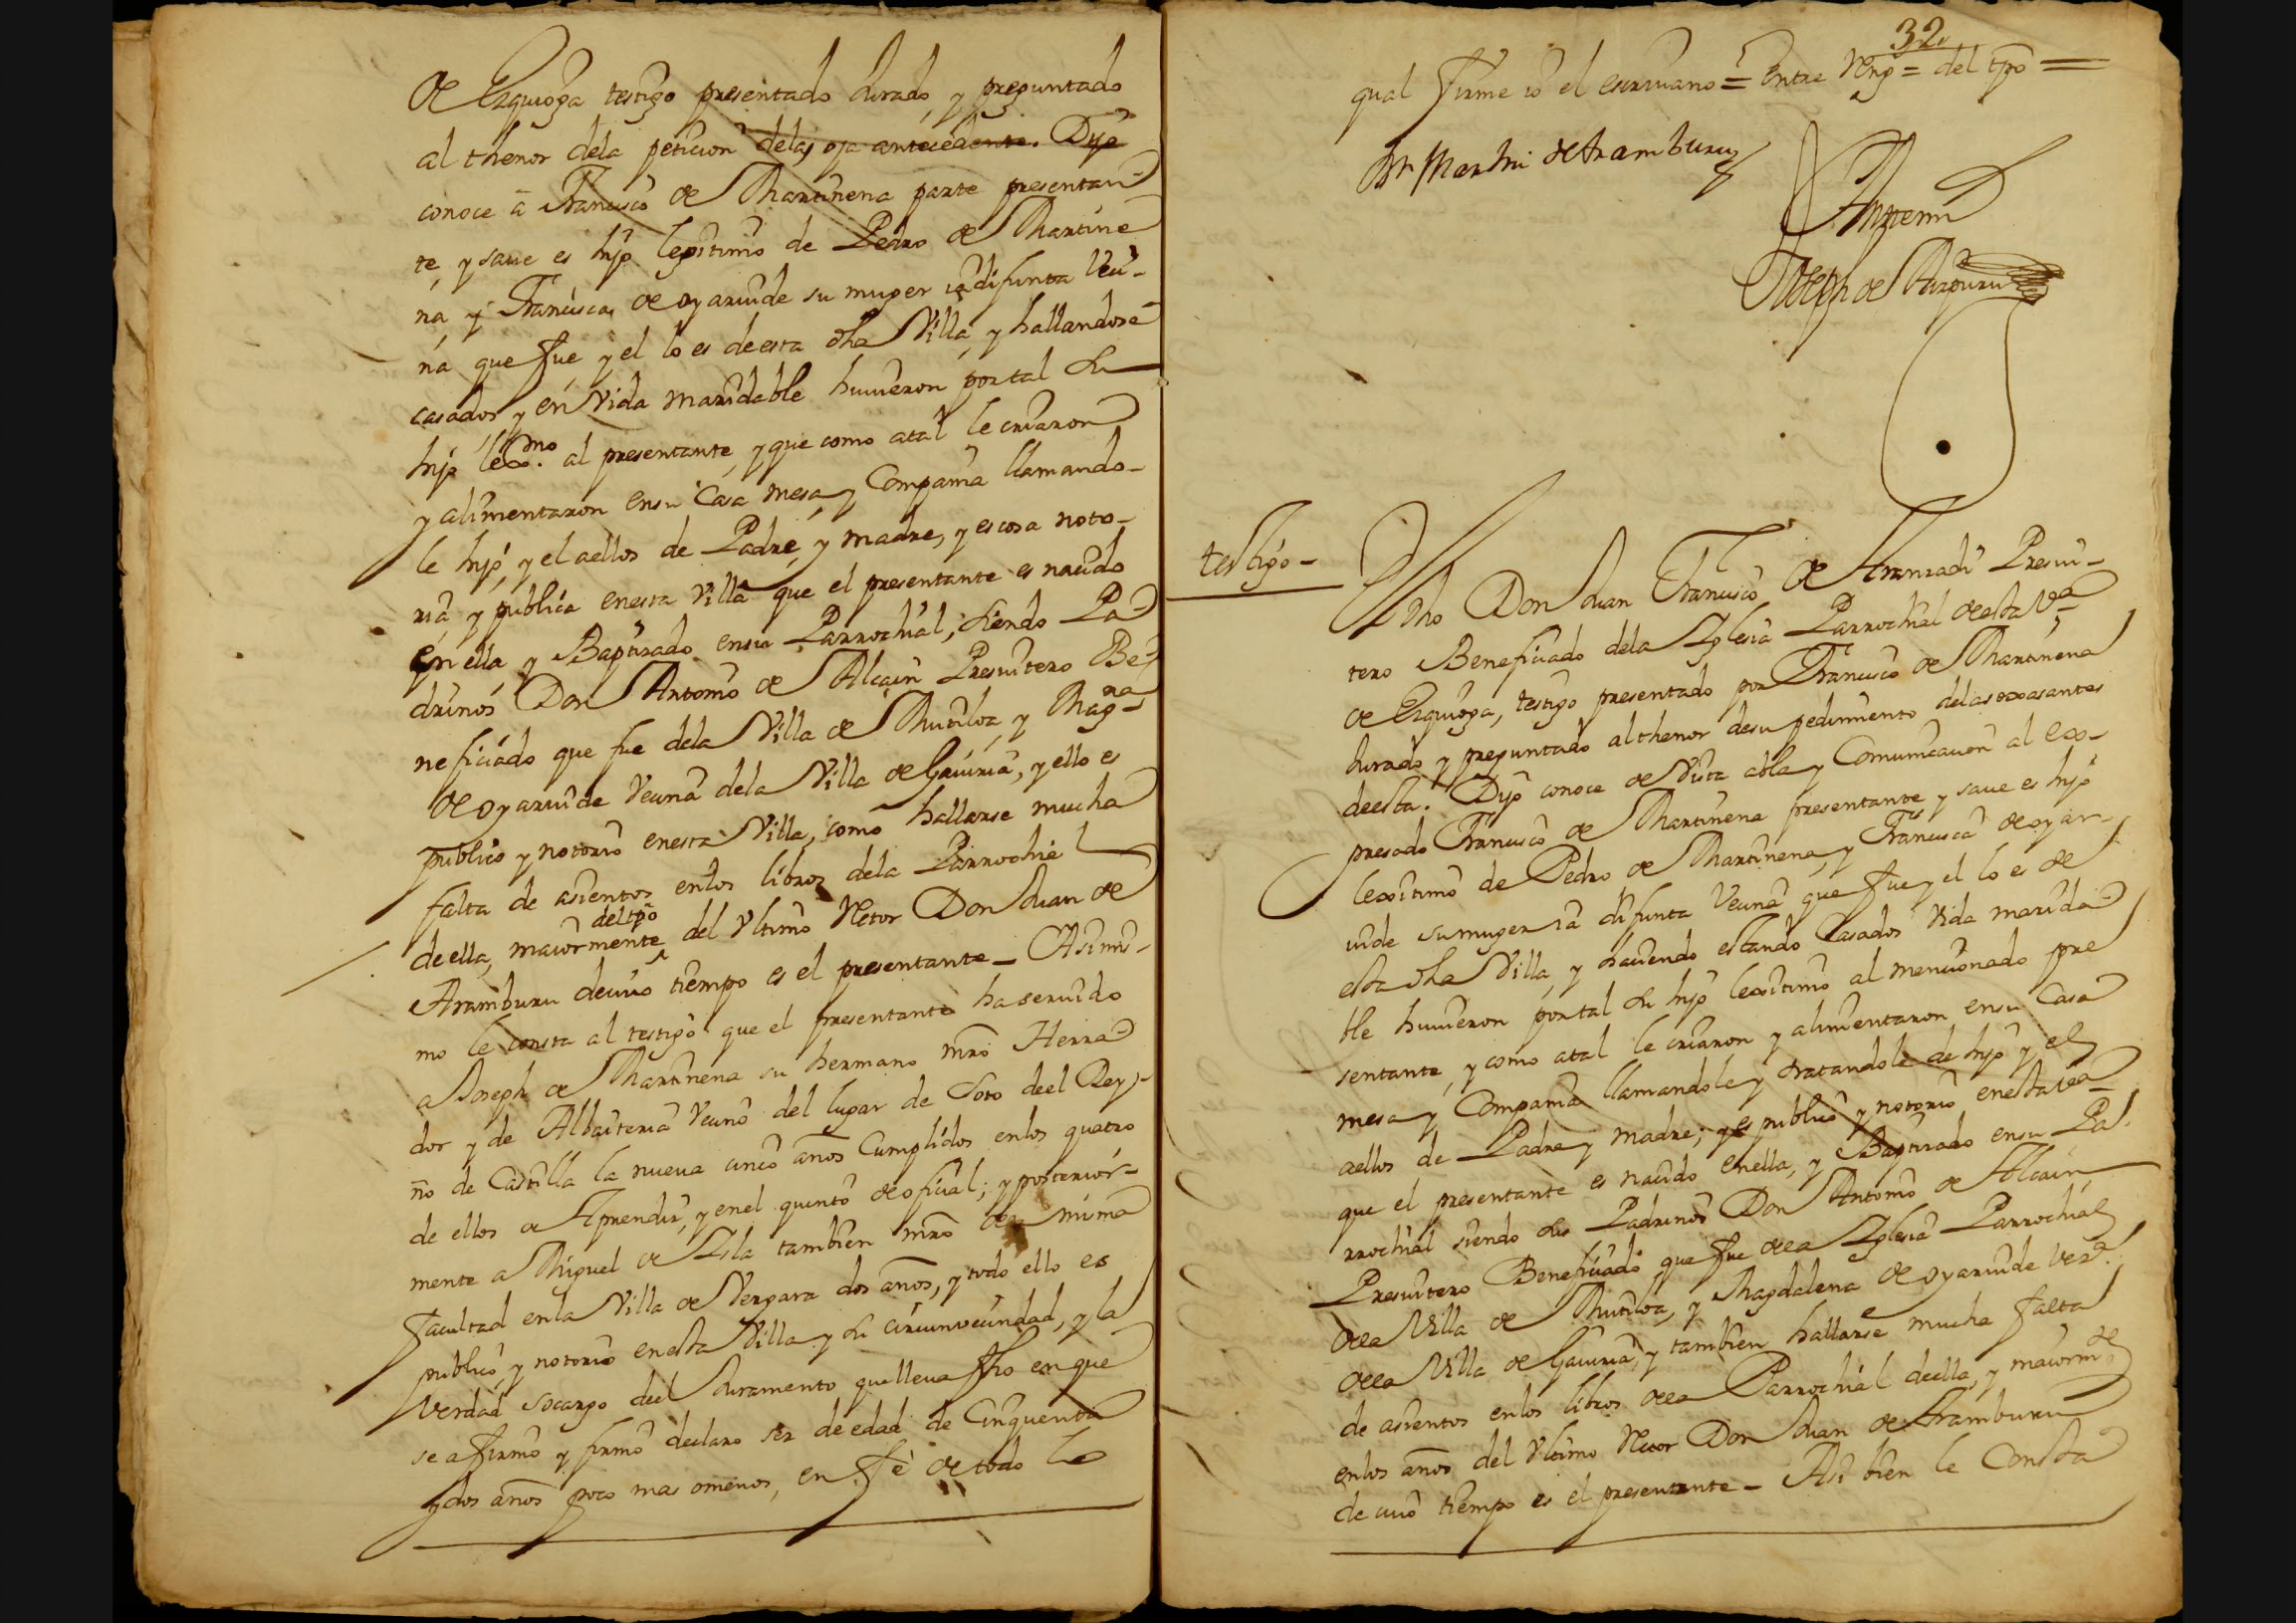 de Ezquioga testigo presentado Jurado, y preguntado
al thenor dela peticion delas oja antecedente. Dijo
conoce â Francisco de Martinena parte presentan-
te, y saue es hijo legitimo de Pedro de Martine
na y Francisca de oyaruide su muger ia difunta Veci-
na que fue y el lo es de esta dha Villa, y hallandose
casados y en Vida maridable huuieron por tal su
hijo lexmo. al presentante, y que como atal le criaron
y alimentaron ensu Casa mesa, y Compania llamando-
le hijo, y el aellos de Padre, y madre, y es cosa noto-
ria y publica enesta Villa que el presentante es nacido
en ella, y Baptizado ensu Parrochial, siendo Pa-
drinos Don Antonio de Alcain Presuitero Be-
neficiado que fue dela Villa de Mutiloa, y Magna
de oyaruide Vecina dela Villa de Gauiria, y ello es
publico y notorio enesta Villa, como hallarse mucha
falta de asientos enlos libros dela Parrochial
deella, maiormente deltpo del Vltimo Retor Don Juan de
Aramburu decuio tiempo es el presentante – Asimis-
mo le consta al testigo que el presentante ha seruido
a Joseph de Martinena su hermano mro Herra-
dor y de Albaiteria Vecino del lugar de Soto deel Rey-
no de Castilla la nueua cinco años Cumplidos enlos quatro
de ellos de Aprendiz, y enel quinto de oficial; y posterior-
mente a Miguel de Isla tambien mro de misma
facultad enla Villa de Vergara dos años, y todo ello es
publico y notorio enesta Villa y su circunvecindad, y la
Verdad socargo deel Juramento que lleua fho en que
se afirmo y firmo declaro ser de edad de Cinquenta
y dos años poco mas omenos, en fe de todo lo
32
qual firme io el escriuano = Entre Reng = del tpo =
Dn Martin de Aramburu
Antemi
Joseph de Aizpuru
testigo –
Dho Don Juan Francisco de Aranzadi Presui-
tero Beneficiado dela Iglesia Parrochial de esta Va
de Ezquioga, testigo presentado por Francisco de Martinena
Jurado y preguntado althenor desu pedimiento delas oxas antes
deesta. Dijo conoce de Vista abla y Comunicacion al ex-
presado Francisco de Martinena presentante y saue es hijo
lexitimo de Pedro de Martinena, y Francisca de oyar-
uide su muger ia difunta Vecina que fue y el lo es de
esta dha Villa, y hauiendo estando Casados Vida marida-
ble huuieron por tal su hijo lexitimo al mencionado pre
sentante, y como atal le criaron y alimentaron ensu Casa
mesa y Compania llamandole y tratandole de hijo y el
aellos de Padre y madre; y es publico y notorio enesta Va
que el presentante es nacido enella, y Baptizado ensu Pa-
rrochial siendo sus Padrinos Don Antonio de Alcain,
Presuitero Beneficiado que fue dela Iglesia Parrochial
dela Villa de Mutiloa, y Magdalena de oyaruide Veza.
dela Villa de Gauiria, y tambien hallarse mucha falta
de asientos enlos libros dela Parrochial deella, y maiormte
enlos años del Vltimo Retor Don Juan de Aramburu
de cuio tiempo es el presentante – Asi bien le Consta